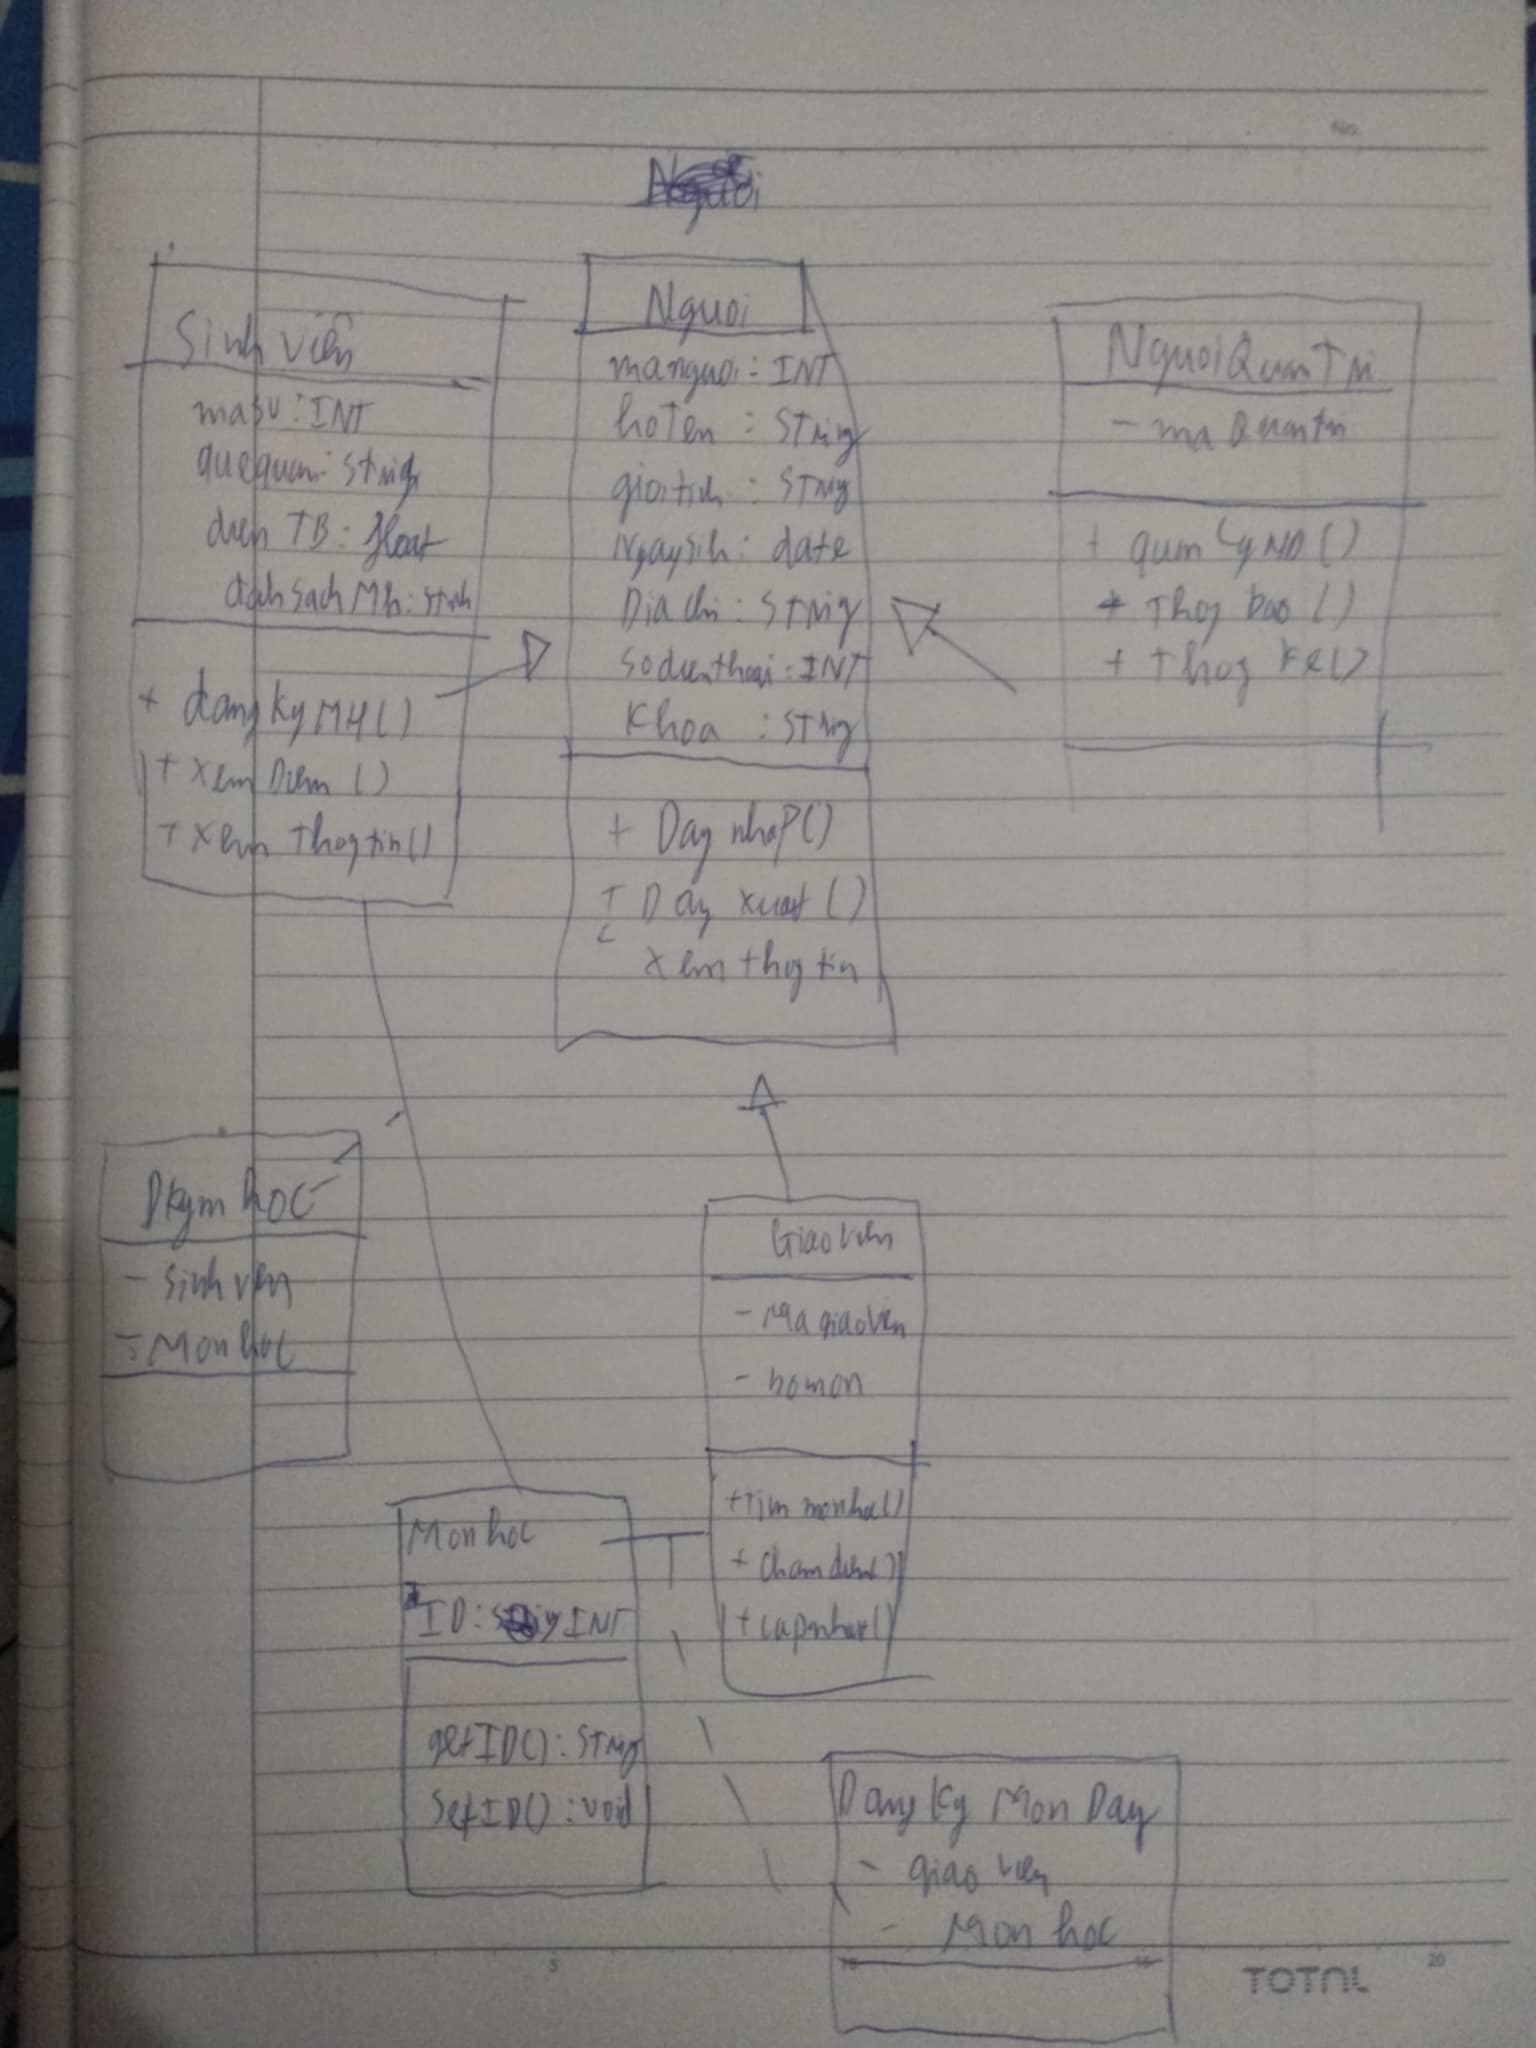 No.
Sinh viên
masv: INT
quequan: String
diem TB: float
danhsach Mh: 
+ dangkyMH()
+ xem Diem ()
+ xem thogtin()
Nguoi
manguoi: INT
hoten : String
gioitinh : String
Ngaysih: date
Dia chi: String
sodienthoai: INT
Khoa : String
+ Dag nhap()
+ Dag xuat ()
xem thogtin
NguoiQuanTri
- ma Quantri
+ quanlyND()
+ Thog bao ()
+ Thog ke()
Dkym hoc
- sinh vien
- Mon hoc
Giaovien
- Magiaovien
- bomon
+ Tim monhoc()
+ chamdiem()
+ capnhat()
Mon hoc
ID: INT
getID(): String
setID(): void
Dang ky Mon Day
- giao vien
- Mon hoc
5
10
15
20
TOTAL